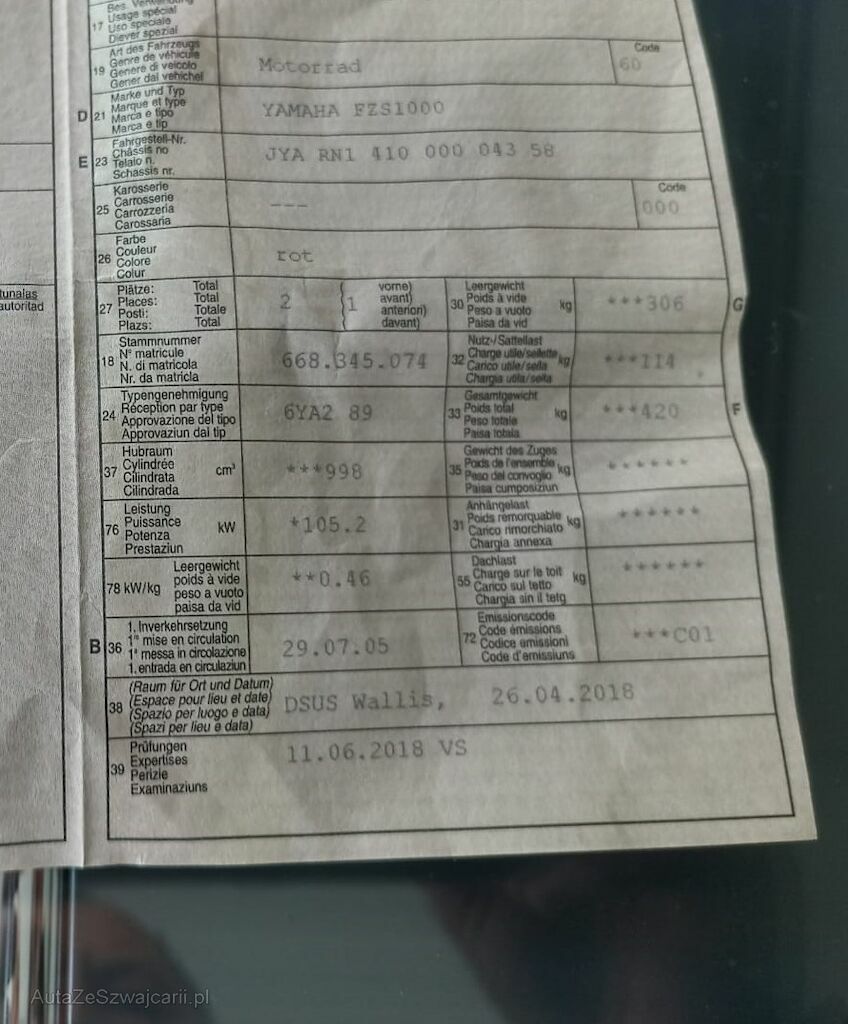 Bes. Verwendung
Usage spécial
17 Uso speciale
Diever spezial
Art des Fahrzeugs
Genre de véhicule
19 Genere di veicolo
Gener dal vehichel
Motorrad
Code
60
Marke und Typ
Marque et type
D 21 Marca e tipo
Marca e tip
YAMAHA FZS1000
Fahrgestell-Nr.
Châssis no
E 23 Telaio n.
Schassis nr.
JYA RN1 410 000 043 58
Karosserie
Carrosserie
25 Carrozzeria
Carossaria
---
Code
000
Farbe
Couleur
26 Colore
Colur
rot
tunalas
autoritad
Plätze: Total
27 Places: Total
Posti: Totale
Plazs: Total
2
1
vorne)
avant)
anteriori)
davant)
Leergewicht
30 Poids à vide kg
Peso a vuoto
Paisa da vid
***306
G
Stammnummer
N° matricule
18 N. di matricola
Nr. da matricla
668.345.074
Nutz-/Sattellast
32 Charge utile/sellette kg
Carico utile/sella
Chargia utila/sella
***114
Typengenehmigung
Réception par type
24 Approvazione del tipo
Approvaziun dal tip
6YA2 89
Gesamtgewicht
33 Poids total kg
Peso totale
Paisa totala
***420
F
Hubraum
37 Cylindrée cm³
Cilindrata
Cilindrada
***998
Gewicht des Zuges
35 Poids de l'ensemble kg
Peso del convoglio
Paisa cumposiziun
******
Leistung
76 Puissance kW
Potenza
Prestaziun
*105.2
Anhängelast
31 Poids remorquable kg
Carico rimorchiato
Chargia annexa
******
Leergewicht
78 kW/kg poids à vide
peso a vuoto
paisa da vid
**0.46
Dachlast
55 Charge sur le toit kg
Carico sul tetto
Chargia sin il tetg
******
1. Inverkehrsetzung
B 36 1re mise en circulation
1a messa in circolazione
1. entrada en circulaziun
29.07.05
Emissionscode
72 Code émissions
Codice emissioni
Code d'emissiuns
***C01
(Raum für Ort und Datum)
38 (Espace pour lieu et date)
(Spazio per luogo e data)
(Spazi per lieu e data)
DSUS Wallis, 26.04.2018
Prüfungen
39 Expertises
Perizie
Examinaziuns
11.06.2018 VS
AutaZeSzwajcarii.pl